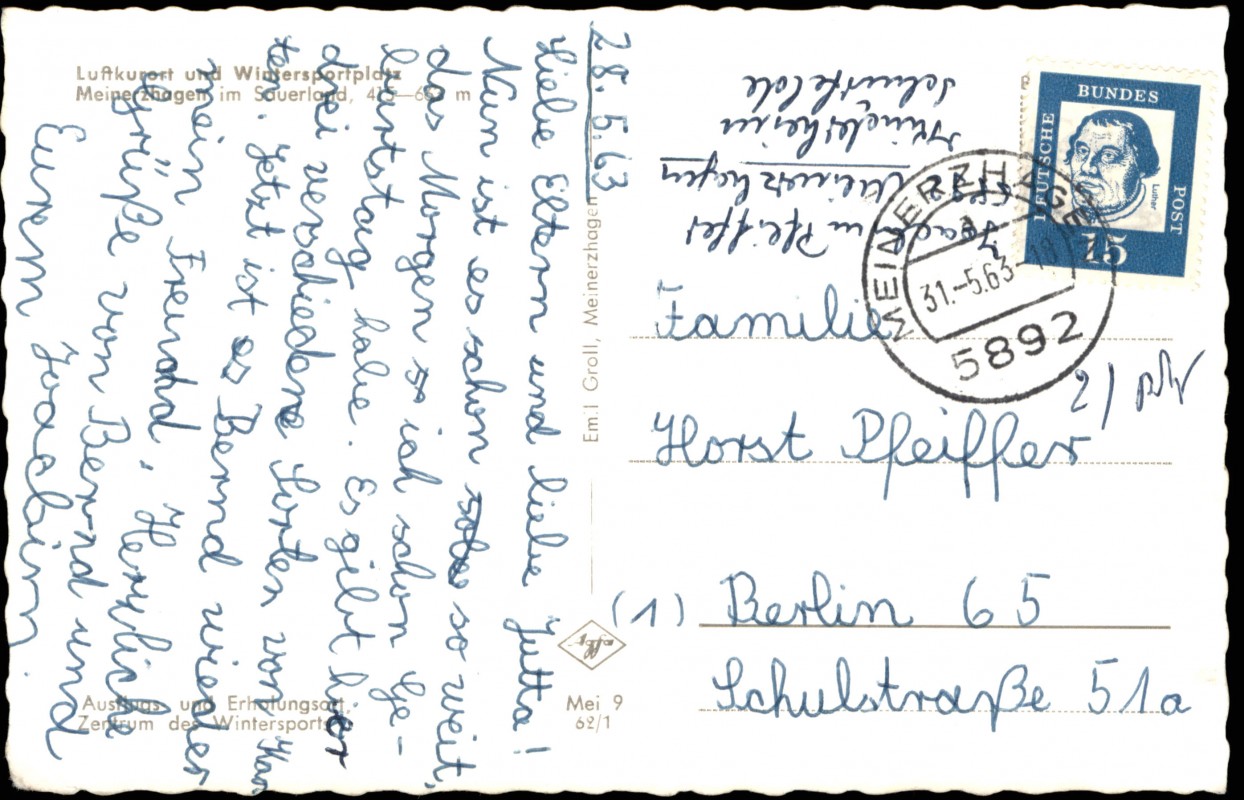 Luftkurort und Wintersportplatz
Meinerzhagen im Sauerland, m
28. 5. 63
Liebe Eltern und liebe Jutta!
Nun ist es schon so weit,
das Morgen so ich schon Ge-
burtstag habe. Es gibt hier
drei verschiedene Sorten von Kar
ten. Jetzt ist es Bernd wieder
mein Freund. Herzliche
Grüße von Bernd und
Eurem Joachim.
Ausflugs- und Erholungsort,
Zentrum des Wintersports
Emil Groll, Meinerzhagen
Mei 9
62/1
Joachim Pfeiffer
Meinerzhagen
Kinderheim
Schürfelde
DEUTSCHE
BUNDES
POST
Luther
15
MEINERZHAGEN
a
31.-5.63-18
5892
Familie
Horst Pfeiffer
(1) Berlin 65
Schulstraße 51a